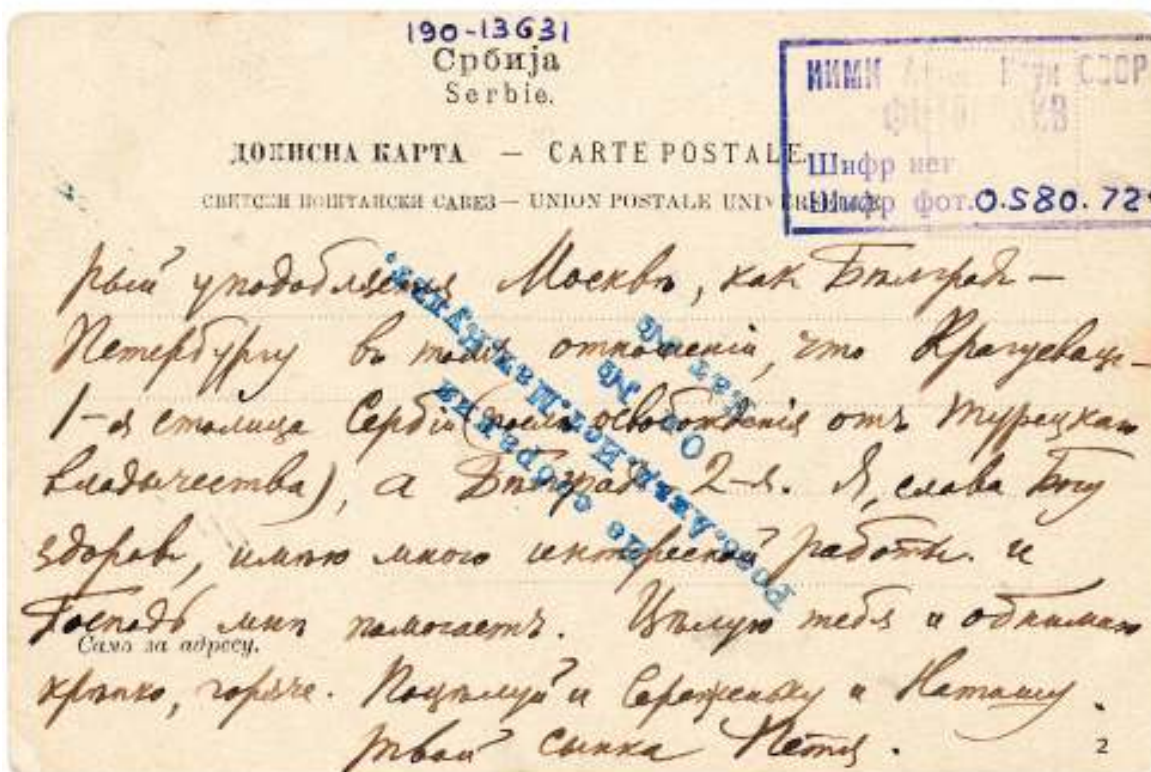 190-13631
Србија
Serbie.
ДОПИСНА КАРТА — CARTE POSTALE
СВЕТСКИ ПОШТАНСКИ САВЕЗ — UNION POSTALE UNIVERSELLE
ИИМК СССР
Шифр нег
Шифр фот. O.580.72
рый уподобляется Москвѣ, как Бѣлградъ —
Петербургу въ томъ отношеніи, что Крагуевацъ —
1-я столица Сербіи (послѣ освобожденія отъ турецкаго
владычества), а Бѣлградъ 2-я. Я, слава Богу
здоровъ, имѣю много интересной работы и
Господь мнѣ помогаетъ. Цѣлую тебя и обнимаю
Само за адресу.
крѣпко, горячо. Поцѣлуй и Сереженьку и Наташу.
твой сынка Петя.
2